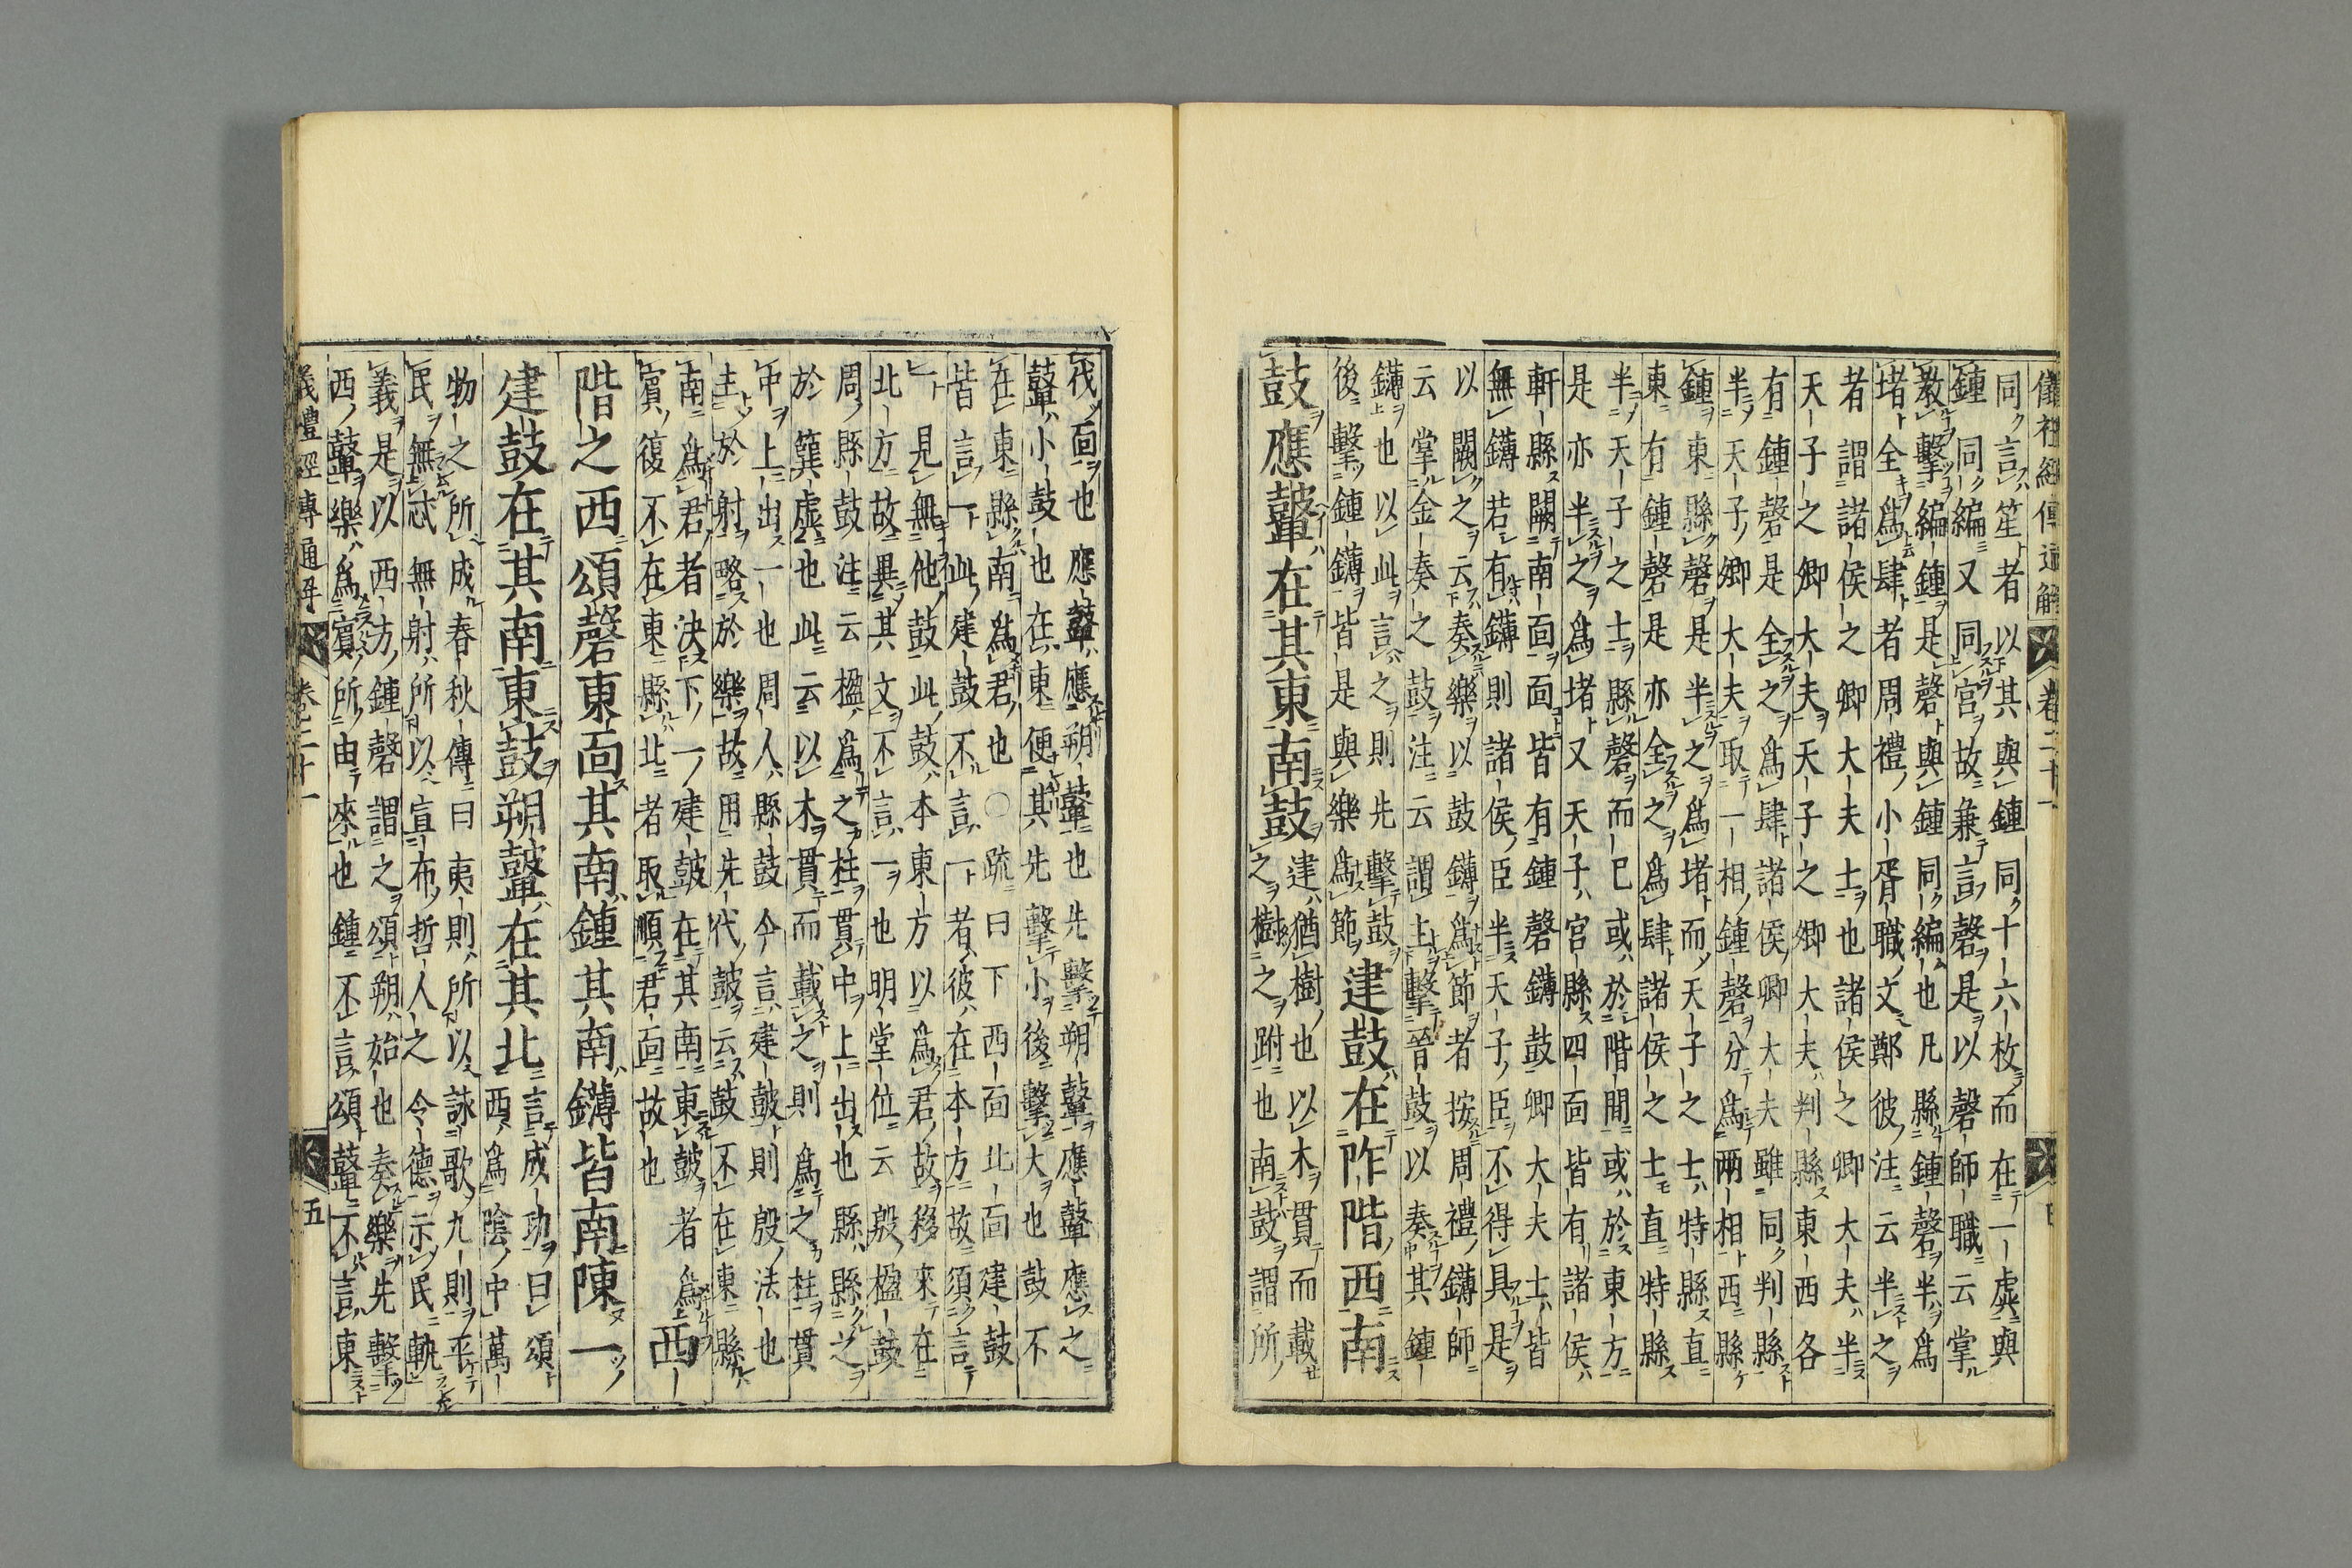 儀禮經傳通解 卷二十一
同言笙者以其與鍾同十六枚而在一虡與
鍾同編又同宮故兼言磬是以磬師職云掌
教擊編鍾是磬與鍾同編也凡縣鍾磬半爲
堵全爲肆者周禮小胥職文鄭彼注云半之
者謂諸侯之卿大夫士也諸侯之卿大夫半
天子之卿大夫天子之卿大夫判縣東西各
有鍾磬是全之爲肆諸侯卿大夫雖同判縣
半天子卿大夫取一相鍾磬分爲兩相西縣
鍾東縣磬是半之爲堵而天子之士特縣直
東有鍾磬是亦全之爲肆諸侯之士直特縣
半天子之士縣磬而已或於階間或於東方
是亦半之爲堵又天子宮縣四面皆有諸侯
軒縣闕南面面皆有鍾磬鏄鼓卿大夫士皆
無鏄若有鏄則諸侯臣半天子臣不得具是
以闕之云奏樂以鼓鏄爲節者按周禮鏄師
云掌金奏之鼓注云謂上擊晉鼓以奏其鍾
鏄也以此言之則先擊鼓
後擊鍾鏄皆是與樂爲節 建鼓在阼階西南
鼓應鼙在其東南鼓 建猶樹也以木貫而載
之樹之跗也南鼓謂所
伐面也應鼙應朔鼙也先擊朔鼙應鼙應之
鼙小鼓也在東便其先擊小後擊大也鼓不
在東縣南爲君也○疏曰下西面北面建鼓
皆言一此建鼓不言一者彼在本方故須言
一見無他鼓此鼓本東方以爲君故移來在
北方故異其文不言一也明堂位云殷楹鼓
周縣鼓注云楹爲之柱貫中上出也縣縣之
於簨虡也此云以木貫而載之則爲之柱貫
中上出一也周人縣鼓今言建鼓則殷法也
主於射略於樂故用先代鼓云鼓不在東縣
南爲君者決下一建鼓在其南東鼓者爲
賓復不在東縣北者取順君面故也 西
階之西頌磬東面其南鍾其南鏄皆南陳一
建鼓在其南東鼓朔鼙在其北 言成功曰頌
西爲陰中萬
物之所成春秋傳曰夷則所以詠歌九則平
民無忒無射所以宣布哲人之令德示民軌
義是以西方鍾磬謂之頌朔始也奏樂先擊
西鼙樂爲賓所由來也鍾不言頌鼙不言東
義禮經傳通解 卷二十一 五